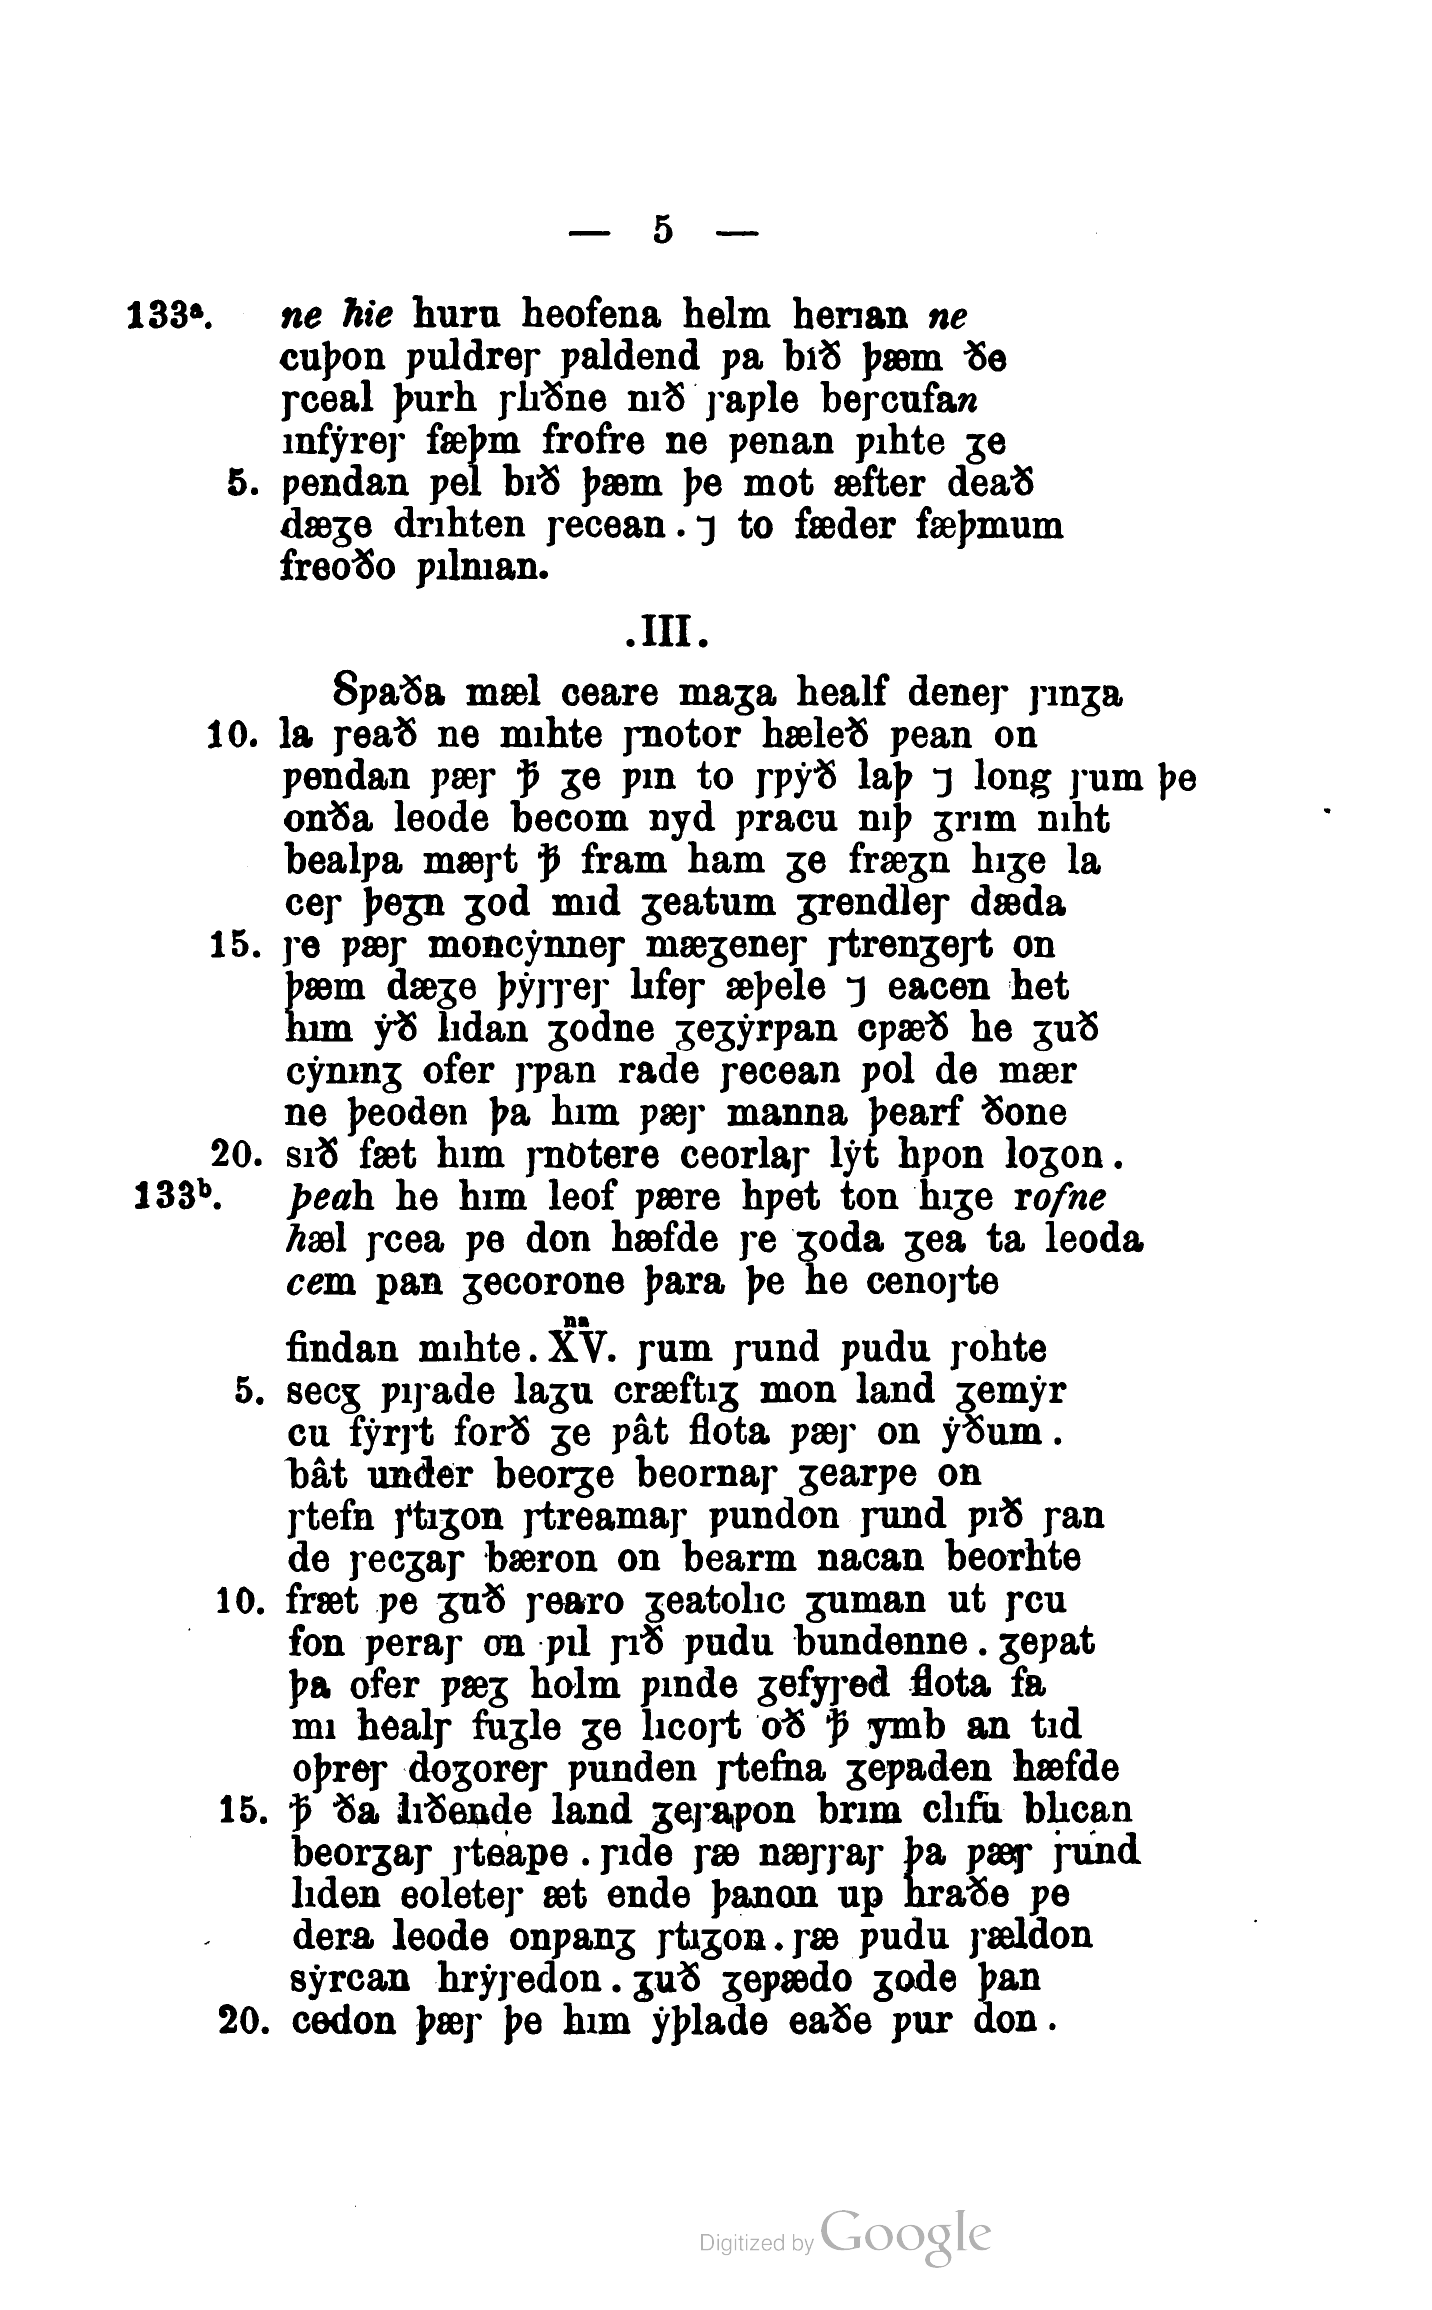 — 5 —
133ᵃ. ne hie huru heofena helm herıan ne
cuþon puldreꞅ paldend pa bıð þæm ðe
ꞅceal þurh ꞅlıðne nıð ꞅaple beꞅcufan
ınfẏreꞅ fæþm frofre ne penan pıhte ʒe
5. pendan pel bıð þæm þe mot æfter deað
dæʒe drıhten ꞅecean . ⁊ to fæder fæþmum
freoðo pılnıan.
.III.
Spaða mæl ceare maʒa healf deneꞅ ꞅınʒa
10. la ꞅeað ne mıhte ꞅnotor hæleð pean on
pendan pæꞅ ꝥ ʒe pın to ꞅpẏð laþ ⁊ long ꞅum þe
onða leode becom nyd pracu nıþ ʒrım nıht
bealpa mæꞅt ꝥ fram ham ʒe fræʒn hıʒe la
ceꞅ þeʒn ʒod mıd ʒeatum ʒrendleꞅ dæda
15. ꞅe pæꞅ moncẏnneꞅ mæʒeneꞅ ꞅtrenʒeꞅt on
þæm dæʒe þẏꞅꞅeꞅ lıfeꞅ æþele ⁊ eacen het
hım ẏð lıdan ʒodne ʒeʒẏrpan cpæð he ʒuð
cẏnınʒ ofer ꞅpan rade ꞅecean pol de mær
ne þeoden þa hım pæꞅ manna þearf ðone
20. sıð fæt hım ꞅnotere ceorlaꞅ lẏt hpon loʒon .
133ᵇ. þeah he hım leof pære hpet ton hıʒe rofne
hæl ꞅcea pe don hæfde ꞅe ʒoda ʒea ta leoda
cem pan ʒecorone þara þe he cenoꞅte
na
findan mıhte . XV. ꞅum ꞅund pudu ꞅohte
5. secʒ pıꞅade laʒu cræftıʒ mon land ʒemẏr
cu fẏrꞅt forð ʒe pât flota pæꞅ on ẏðum .
bât under beorʒe beornaꞅ ʒearpe on
ꞅtefn ꞅtıʒon ꞅtreamaꞅ pundon ꞅund pıð ꞅan
de ꞅecʒaꞅ bæron on bearm nacan beorhte
10. fræt pe ʒuð ꞅearo ʒeatolıc ʒuman ut ꞅcu
fon peraꞅ on pıl ꞅıð pudu bundenne . ʒepat
þa ofer pæʒ holm pınde ʒefyꞅed flota fa
mı healꞅ fuʒle ʒe lıcoꞅt oð ꝥ ymb an tıd
oþreꞅ doʒoreꞅ punden ꞅtefna ʒepaden hæfde
15. ꝥ ða lıðende land ʒeꞅapon brım clıfu blıcan
beorʒaꞅ ꞅteape . ꞅıde ꞅæ næꞅꞅaꞅ þa pæꞅ ꞅund
lıden eoleteꞅ æt ende þanon up hraðe pe
dera leode onpanʒ ꞅtıʒon . ꞅæ pudu ꞅældon
sẏrcan hrẏꞅedon . ʒuð ʒepædo ʒode þan
20. cedon þæꞅ þe hım ẏþlade eaðe pur don .
Digitized by Google